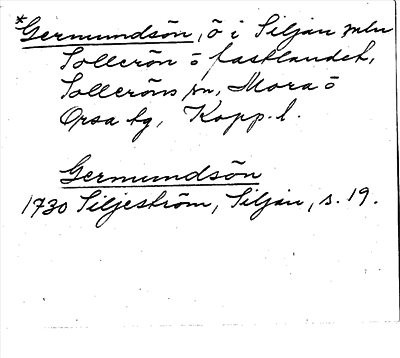 *Germundsön, ö i Siljan mln
Sollerön ö fastlandet,
Solleröns sn, Mora ö
Orsa tg, Kopp. l.
Germundsön
1730 Siljeström, Siljan, s. 19.